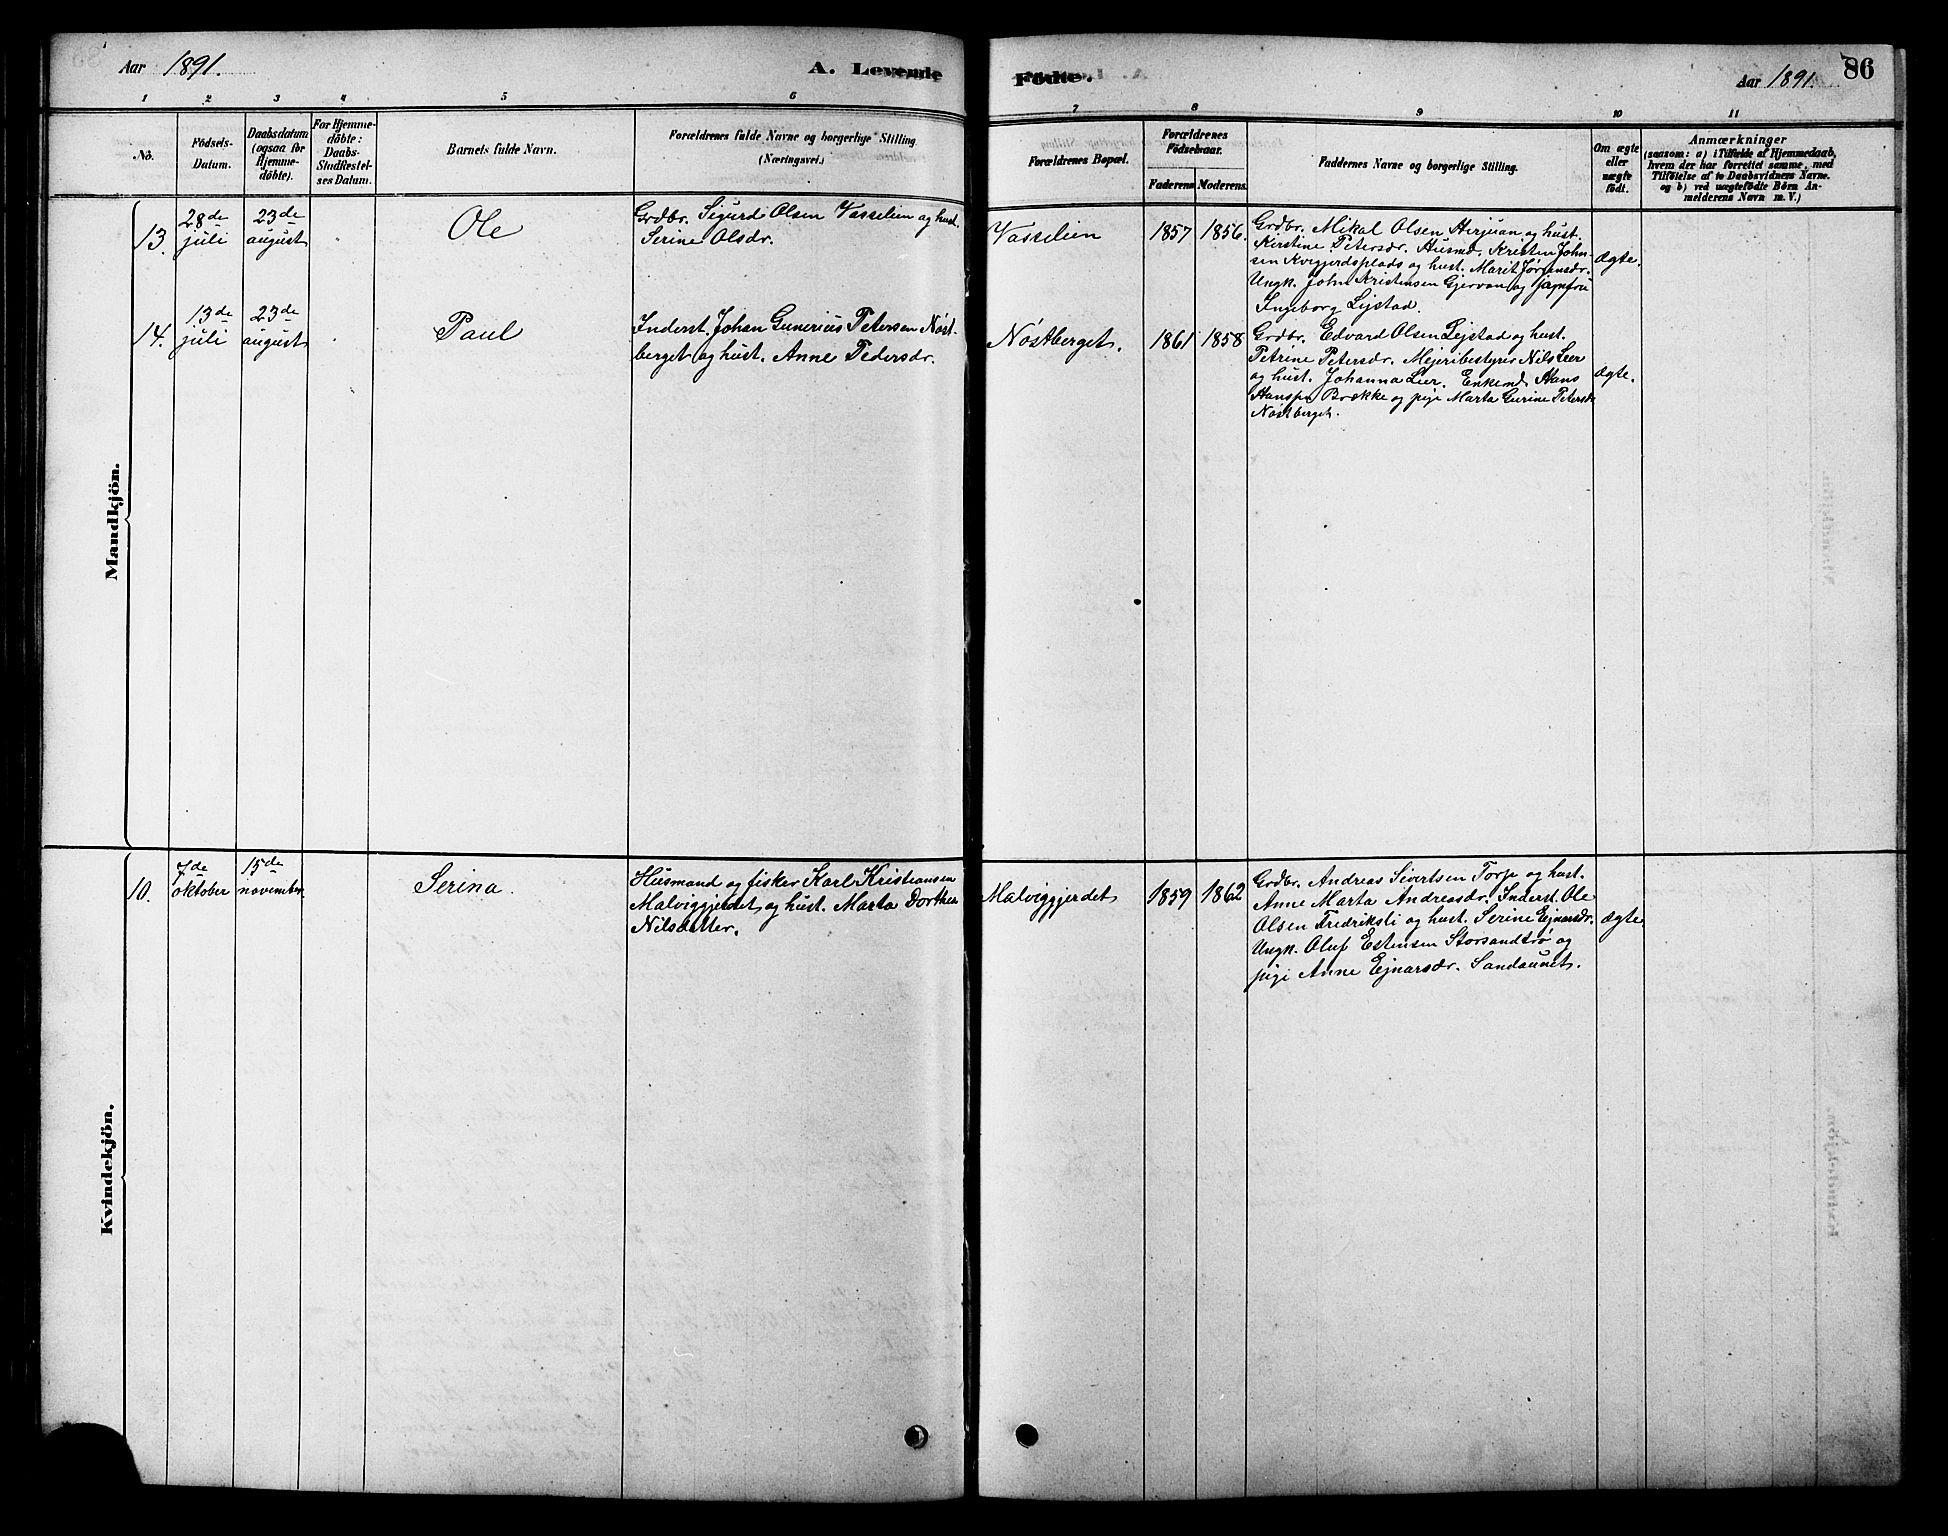 Aar 1891.
A. Levende
Födte.
Aar 1891.
86
1 2 3 4 5 6
7 8 9 10 11
No.
Födsels-
Datum.
Daabsdatum
(ogsaa for
Hjemme-
döbte).
For Hjemme-
döbte:
Daabs-
Stadfæstel-
ses Datum.
Barnets fulde Navn.
Forældrenes fulde Navne og borgerlige Stilling
(Næringsvei.)
Forældrenes Bopæl.
Forældrenes
Födselsaar.
Faderens Moderens.
Faddernes Navne og borgerlige Stilling.
Om ægte
eller
uægte
födt.
Anmærkninger
(saasom: a) i Tilfælde af Hjemmedaab,
hvem der har forrettet samme, med
Tilföielse af to Daabsvidners Navne.
og b) ved uægtefödte Börn An-
melderens Navn m. V.)
Mandkjön.
13.
28de
juli
23de
august
Ole
Grdbr. Sigurd Olsen Vasselien og hust.
Serine Olsdr.
Vasselien
1857 1856.
Grdbr. Mikal Olsen Herjuan og hust.
Kirstine Petersdr. Husmd. Kristen John-
sen Kvigjerdsplads og hust. Marit Jørgensdr.
Ungk. John Kristensen Gjervan og jomfru
Ingeborg Lejstad.
Ægte.
14.
13de
juli
23de
august
Paul
Inderst. Johan Gunerius Petersen Nøst-
berget og hust. Anne Pedersdr.
Nøstberget.
1861 1858
Grdbr. Edvard Olsen Lejstad og hust.
Petrine Petersdr. Mejeribestyrer Nils Leer
og hust. Johanna Leer. Enkemd. Hans
Hansen Brække og pige Marta Gurine Petersdr
Nøstberget.
Ægte.
Kvindekjön.
10.
7de
oktober
15de
november
Serina.
Husmand og fisker Karl Kristiansen
Malviggjerdet og hust. Marta Dorthea
Nilsdatter.
Malviggjerdet
1859 1862
Grdbr. Andreas Sivertsen Torp og hust.
Anne Marta Andreasdr. Inderst. Ole
Olsen Fredriksli og hust. Serine Ejnarsdr.
Ungk. Oluf Estensen Storsandtrø og
pige Anne Ejnarsdr. Sandaunet.
Ægte.